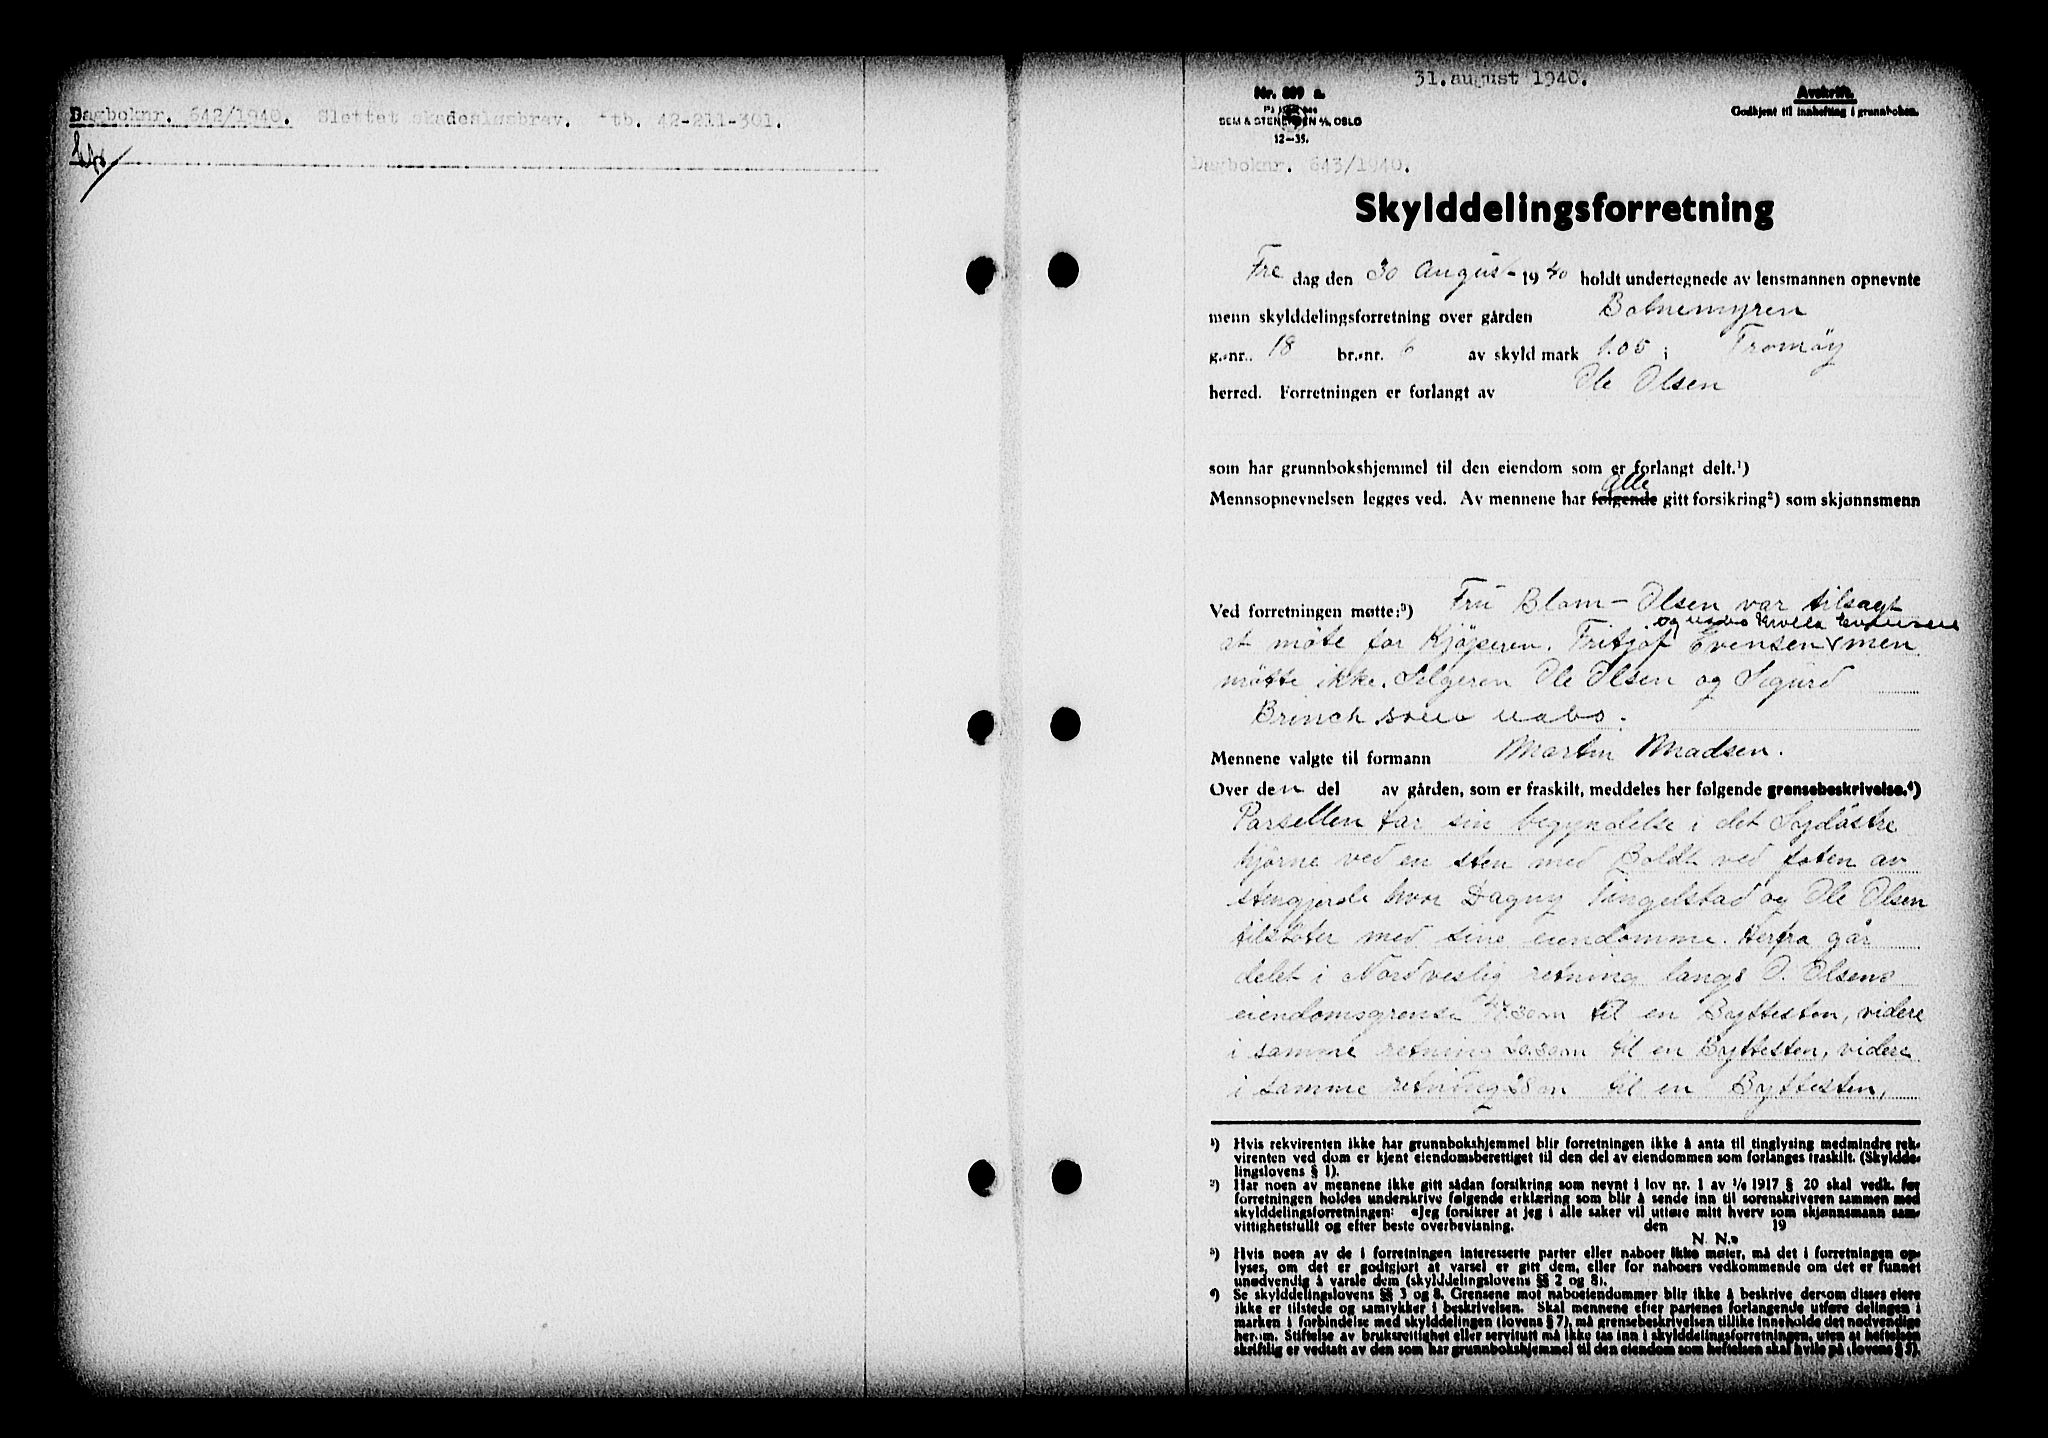 Dagboknr. 642/1940. Slettet skadesløsbrev. Ptb. 42-211-301.
31.august 1940.
Nr. 889 a.
SEM & STENERSEN A/S, OSLO
12—35.
Avskrift.
Godkjent til innhefting i grunnboken.
Dagboknr. 643/1940.
Skylddelingsforretning
Fre dag den 30 August 1940 holdt undertegnede av lensmannen opnevnte
menn skylddelingsforretning over gården Bolnemyren
g.-nr. 18 br.-nr. 6 av skyld mark 1.05 i Tromöy
herred. Forretningen er forlangt av Ole Olsen
som har grunnbokshjemmel til den eiendom som er forlangt delt.¹)
alle
Mennsopnevnelsen legges ved. Av mennene har følgende gitt forsikring²) som skjønnsmenn
Ved forretningen møtte:³) Fru Blom-Olsen var tilsagt
og nabo
at möte for Kjöperen. Fritjof Evensen men
mötte ikke. Selgeren Ole Olsen og Sigurd
Brinch som nabo.
Mennene valgte til formann Martin Madsen.
Over den del av gården, som er fraskilt, meddeles her følgende grensebeskrivelse.⁴)
Parsellen tar sin begyndelse i det Sydöstre
hjörne ved en sten med Boldt ved foten av
stengjerde hvor Dagny Tingelstad og Ole Olsen
tilstöter med sine eiendomme. Herfra går
delet i Nordvestlig retning langs O. Olsens
eiendomsgrense til en Byttesten, videre
i samme retning til en Byttesten, videre
i samme retning til en Byttesten,
¹) Hvis rekvirenten ikke har grunnbokshjemmel blir forretningen ikke å anta til tinglysing medmindre rek-
virenten ved dom er kjent eiendomsberettiget til den del av eiendommen som forlanges fraskilt. (Skyldde-
lingslovens § 1).
²) Har noen av mennene ikke gitt sådan forsikring som nevnt i lov nr. 1 av ¹/₆ 1917 § 20 skal vedk. før
forretningen holdes underskrive følgende erklæring som blir å sende inn til sorenskriveren sammen med
skylddelingsforretningen: «Jeg forsikrer at jeg i alle saker vil utføre mitt hverv som skjønnsmann sam-
vittighetsfullt og efter beste overbevisning. den 19
N. N.»
³) Hvis noen av de i forretningen interesserte parter eller naboer ikke møter, må det i forretningen op-
lyses, om det er godtgjort at varsel er gitt dem, eller for naboers vedkommende om det er funnet
unødvendig å varsle dem (skylddelingslovens §§ 2 og 8).
⁴) Se skylddelingslovens §§ 3 og 8. Grensene mot naboeiendommer blir ikke å beskrive dersom disses eiere
ikke er tilstede og samtykker i beskrivelsen. Skal mennene efter partenes forlangende utføre delingen i
marken i forbindelse med skylddelingen (lovens § 7), må grensebeskrivelsen tillike inneholde det nødvendige
herom. Stiftelse av bruksrettighet eller servitutt må ikke tas inn i skylddelingsforretningen, uten at heftelsen
skriftlig er vedtatt av den som har grunnbokshjemmel til den eiendom som heftelsen skal hvile på (lovens § 5).